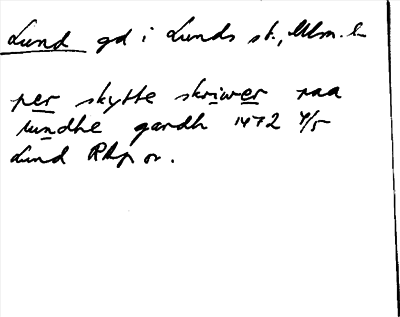 Lund gd i Lunds sn, Mlm. l.
per skytte skriwer paa
lundhe gardh 1472 4/5
Lund Rkp or.